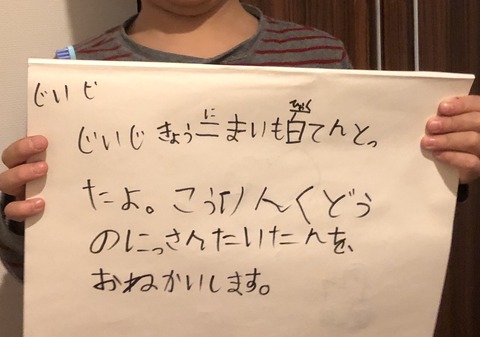 じいじ
じいじ きょう二まいも百てんとっ
たよ。こうりんくどう
のにっさんたいたんを、
おねかいします。